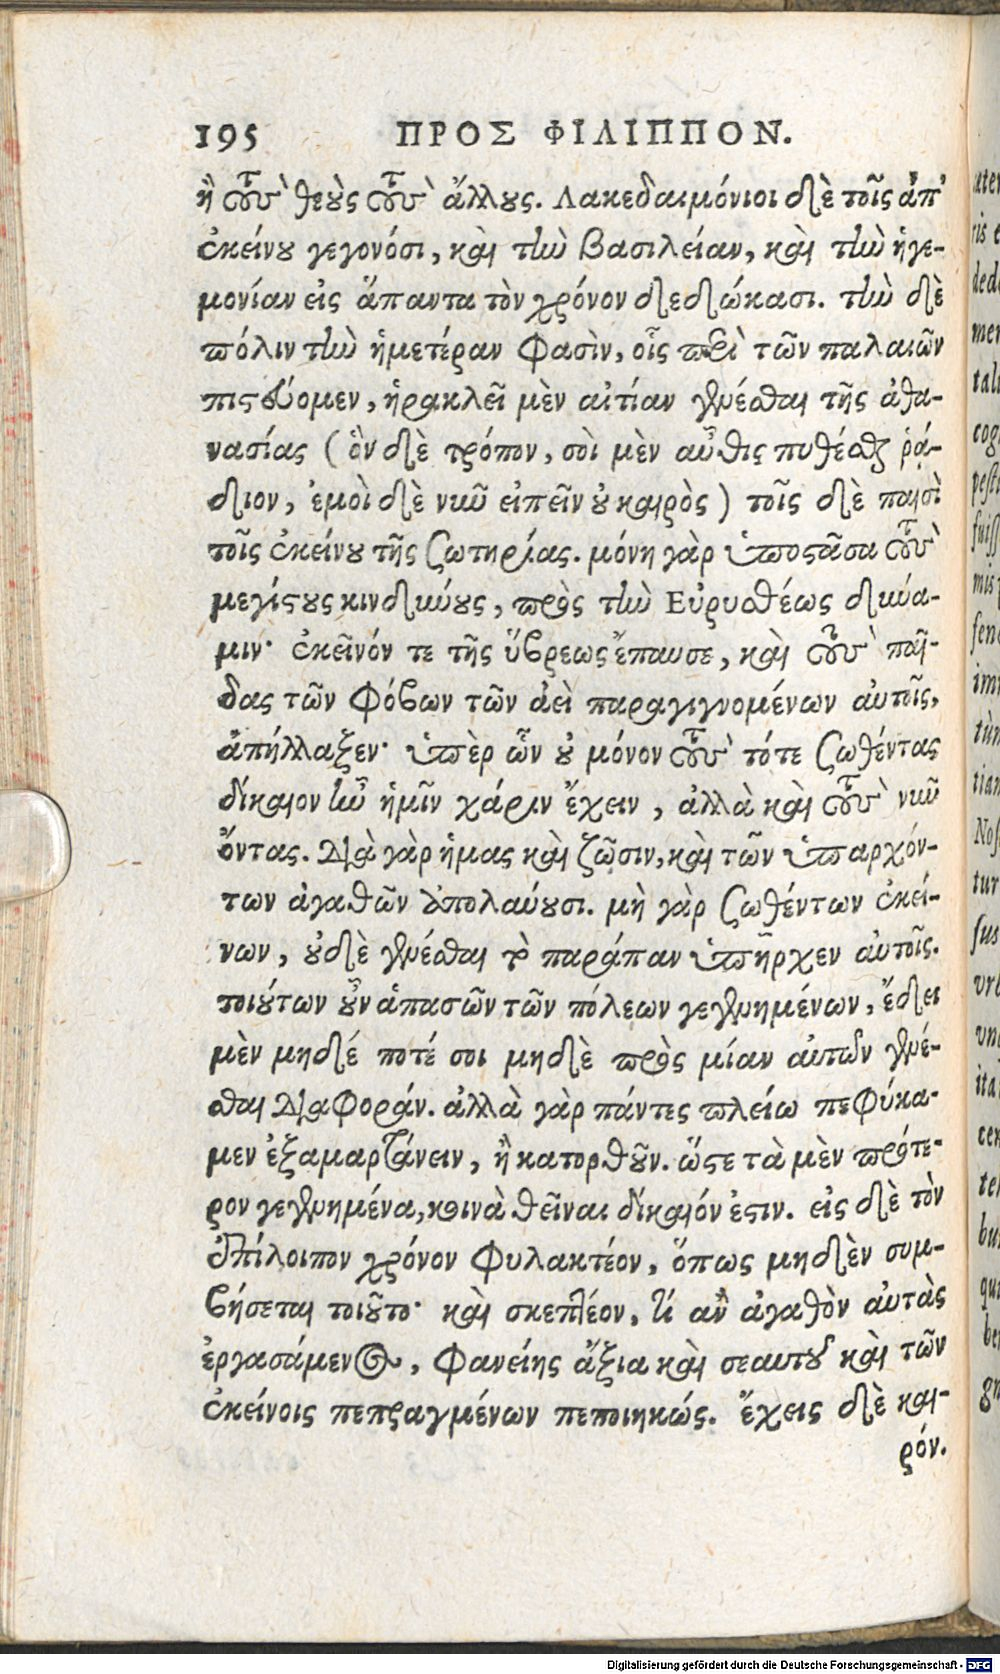 195 ΠΡΟΣ ΦΙΛΙΠΠΟΝ.
ἢ τοὺς θεοὺς τοὺς ἄλλους. Λακεδαιμόνιοι δὲ τοῖς ἀπ'
ἐκείνου γεγονόσι, καὶ τὴν βασιλείαν, καὶ τὴν ἡγε-
μονίαν εἰς ἅπαντα τὸν χρόνον δεδώκασι. τὴν δὲ
πόλιν τὴν ἡμετέραν φασὶν, οἷς περὶ τῶν παλαιῶν
πιστεύομεν, ἡρακλεῖ μὲν αἰτίαν γενέσθαι τῆς ἀθα-
νασίας (ὃν δὲ τρόπον, σοὶ μὲν αὖθις πυθέσθαι ῥά-
διον, ἐμοὶ δὲ νῦν εἰπεῖν οὐ καιρὸς) τοῖς δὲ παισὶ
τοῖς ἐκείνου τῆς ζωτηρίας. μόνη γὰρ ὑποστᾶσα τοὺς
μεγίστους κινδύνους, πρὸς τὴν Εὐρυσθέως δύνα-
μιν· ἐκεῖνόν τε τῆς ὕβρεως ἔπαυσε, καὶ τοὺς παῖ-
δας τῶν φόβων τῶν ἀεὶ παραγιγνομένων αὐτοῖς,
ἀπήλλαξεν· ὑπὲρ ὧν οὐ μόνον τοὺς τότε ζωθέντας
δίκαιον ἦν ἡμῖν χάριν ἔχειν, ἀλλὰ καὶ τοὺς νῦν
ὄντας. Διὰ γὰρ ἡμας καὶ ζῶσιν, καὶ τῶν ὑπαρχόν-
των ἀγαθῶν ἀπολαύουσι. μὴ γὰρ ζωθέντων ἐκεί-
νων, οὐδὲ γενέσθαι τὸ παράπαν ὑπῆρχεν αὐτοῖς.
τοιούτων οὖν ἁπασῶν τῶν πόλεων γεγενημένων, ἔδει
μὲν μηδέ ποτέ σοι μηδὲ πρὸς μίαν αὐτῶν γενέ-
σθαι Διαφοράν. ἀλλὰ γὰρ πάντες πλείω πεφύκα-
μεν ἐξαμαρτάνειν, ἢ κατορθοῦν. ὥστε τὰ μὲν πρότε-
ρον γεγενημένα, κοινὰ θεῖναι δίκαιόν ἐστιν. εἰς δὲ τὸν
ἐπίλοιπον χρόνον φυλακτέον, ὅπως μηδὲν συμ-
βήσεται τοιοῦτο· καὶ σκεπτέον, τί ἂν ἀγαθὸν αὐτὰς
ἐργασάμενος, φανείης ἄξια καὶ σεαυτοῦ καὶ τῶν
ἐκείνοις πεπραγμένων πεποιηκώς. ἔχεις δὲ και-
ρόν.
Digitalisierung gefördert durch die Deutsche Forschungsgemeinschaft - DFG